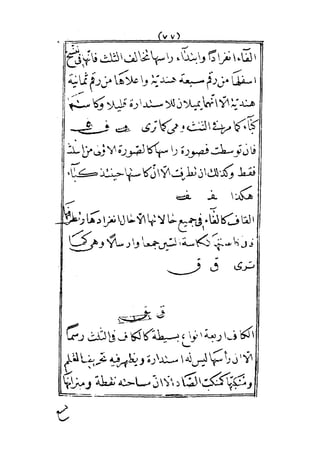 (٧٧)
الفاء انفراداً وابتداء راسها مخالف الثلث فانها فى نسخ
اسفلها من رقم سبعة هندية واعلاها من رقم ثمانية
هندية الا انهما يميلان للاستدارة قليلا وكاستها
كباء كما مر فى الثلث وهى كما ترى ف
فان توسطت فصورة راسها كالصورة الاولى من الثلث
فقط وكذلك ان تطرفت الا ان كاستها حينئذ كباء
هكذا ف ف
القاف كالفاء فى جميع حالاتها الا حال انفرادها
كاسة جمعا وارسالا وهى كما
ترى ق ق
ق
الكاف اربعة انواع بسيطة كالكاف فى الثلث رسما
الا ان رأسها ليس له استدارة ويظهر فيه تحريف القلم
ومنكبها كمنكب الصاد الا ان مساحته نقطة